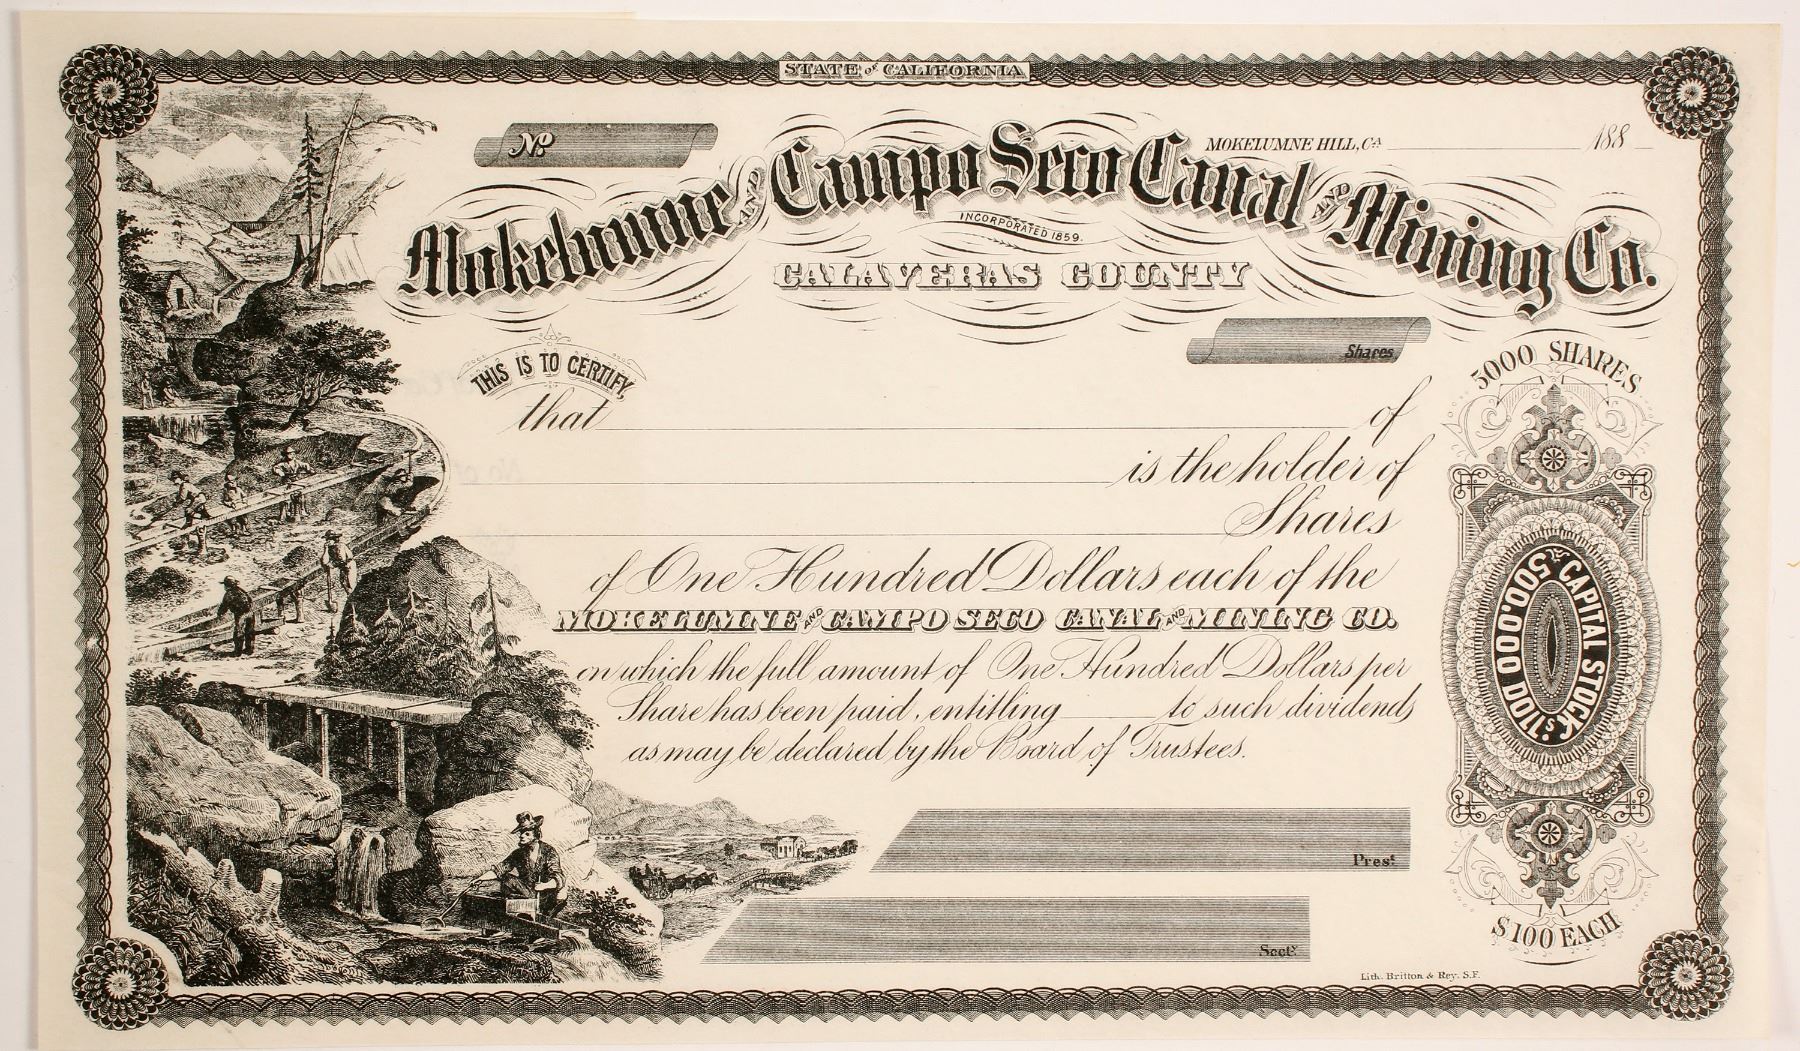 STATE of CALIFORNIA
No.
MOKELUMNE HILL, CA 188
Mokelumne AND Campo Seco Canal AND Mining Co.
INCORPORATED 1859.
CALAVERAS COUNTY
Shares
THIS IS TO CERTIFY,
that of
is the holder of
Shares
of One Hundred Dollars each of the
MOKELUMNE AND CAMPO SECO CANAL AND MINING CO.
on which the full amount of One Hundred Dollars per
Share has been paid, entitling to such dividends
as may be declared by the Board of Trustees.
5000 SHARES
CAPITAL STOCK
500,000 DOLLS.
$100 EACH
Prest.
Secty.
Lith. Britton & Rey. S.F.